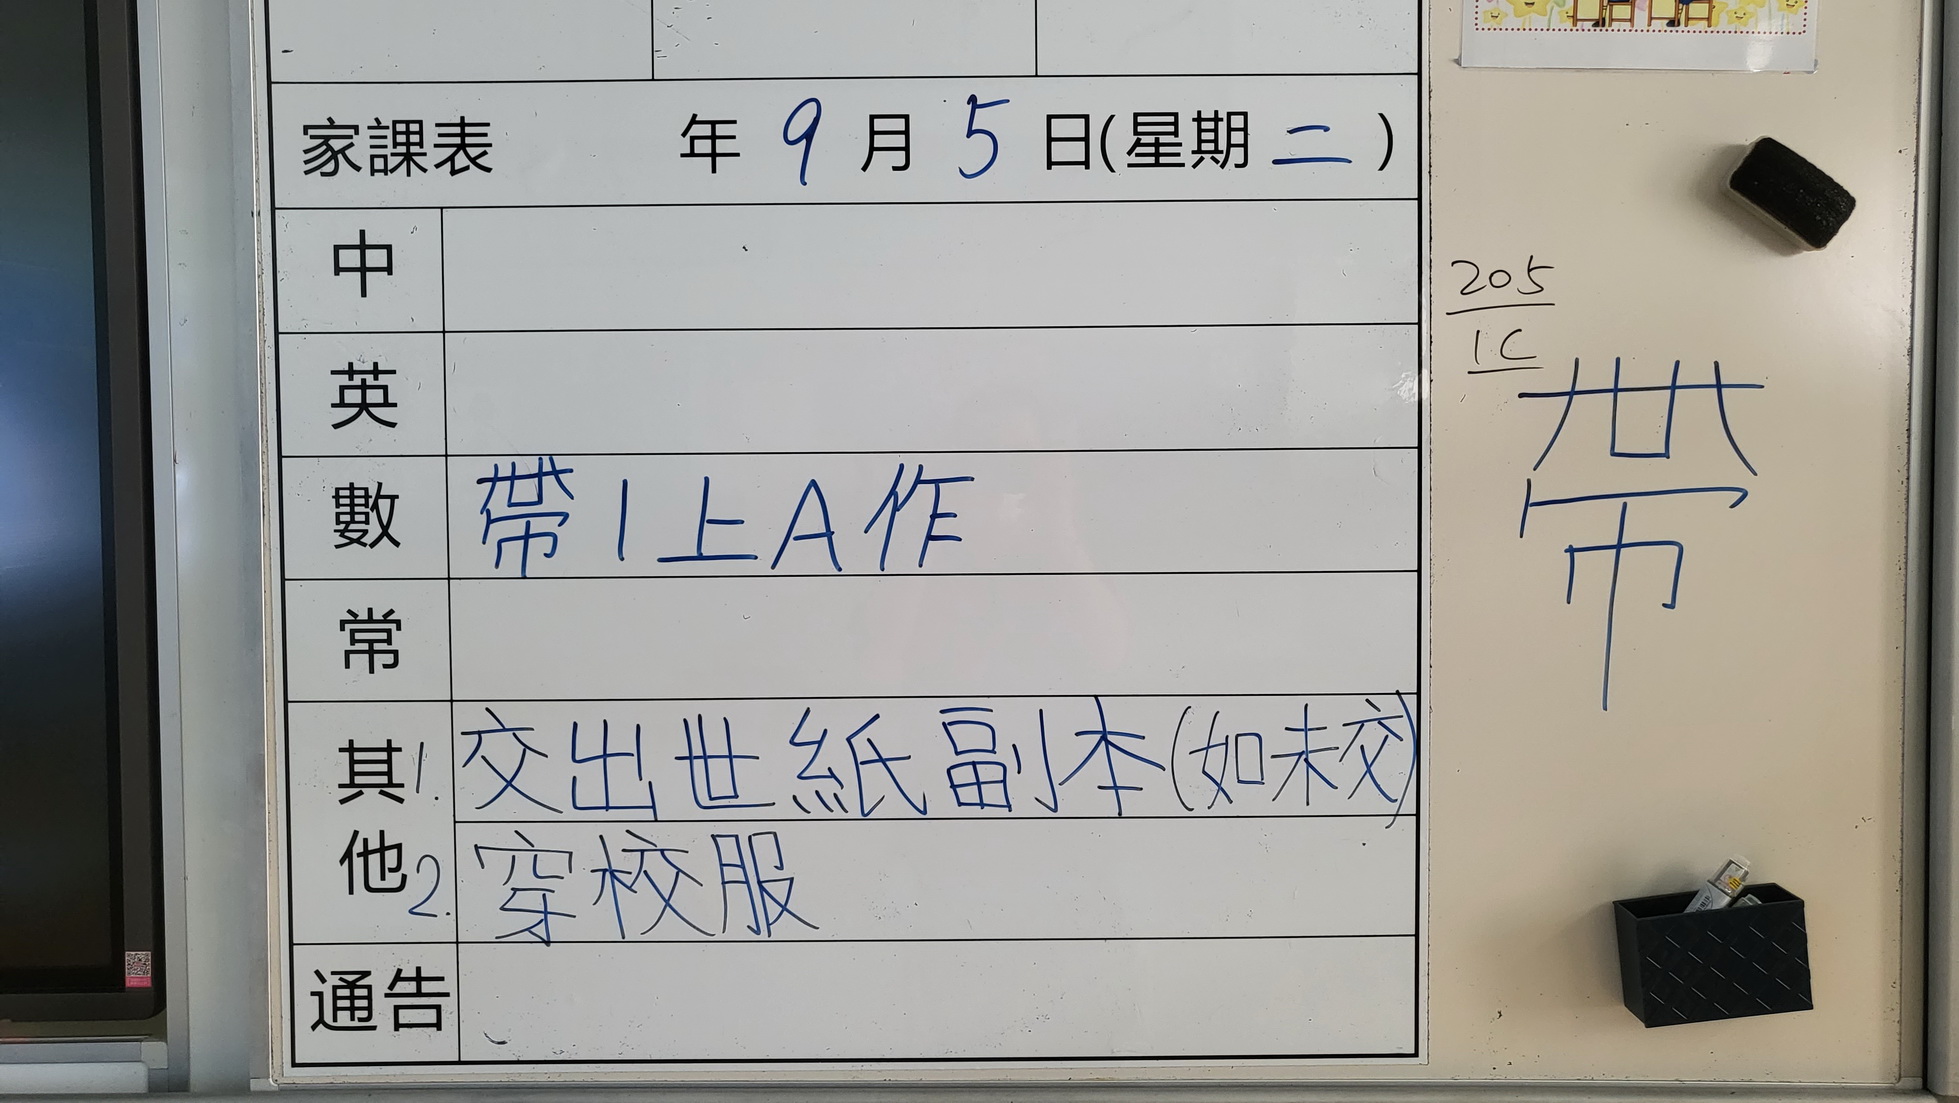 家課表 年 9 月 5 日(星期 二 )
中
英
數 帶1上A作
常
其他 1. 交出世紙副本(如未交)
2. 穿校服
通告
205
1C
帶